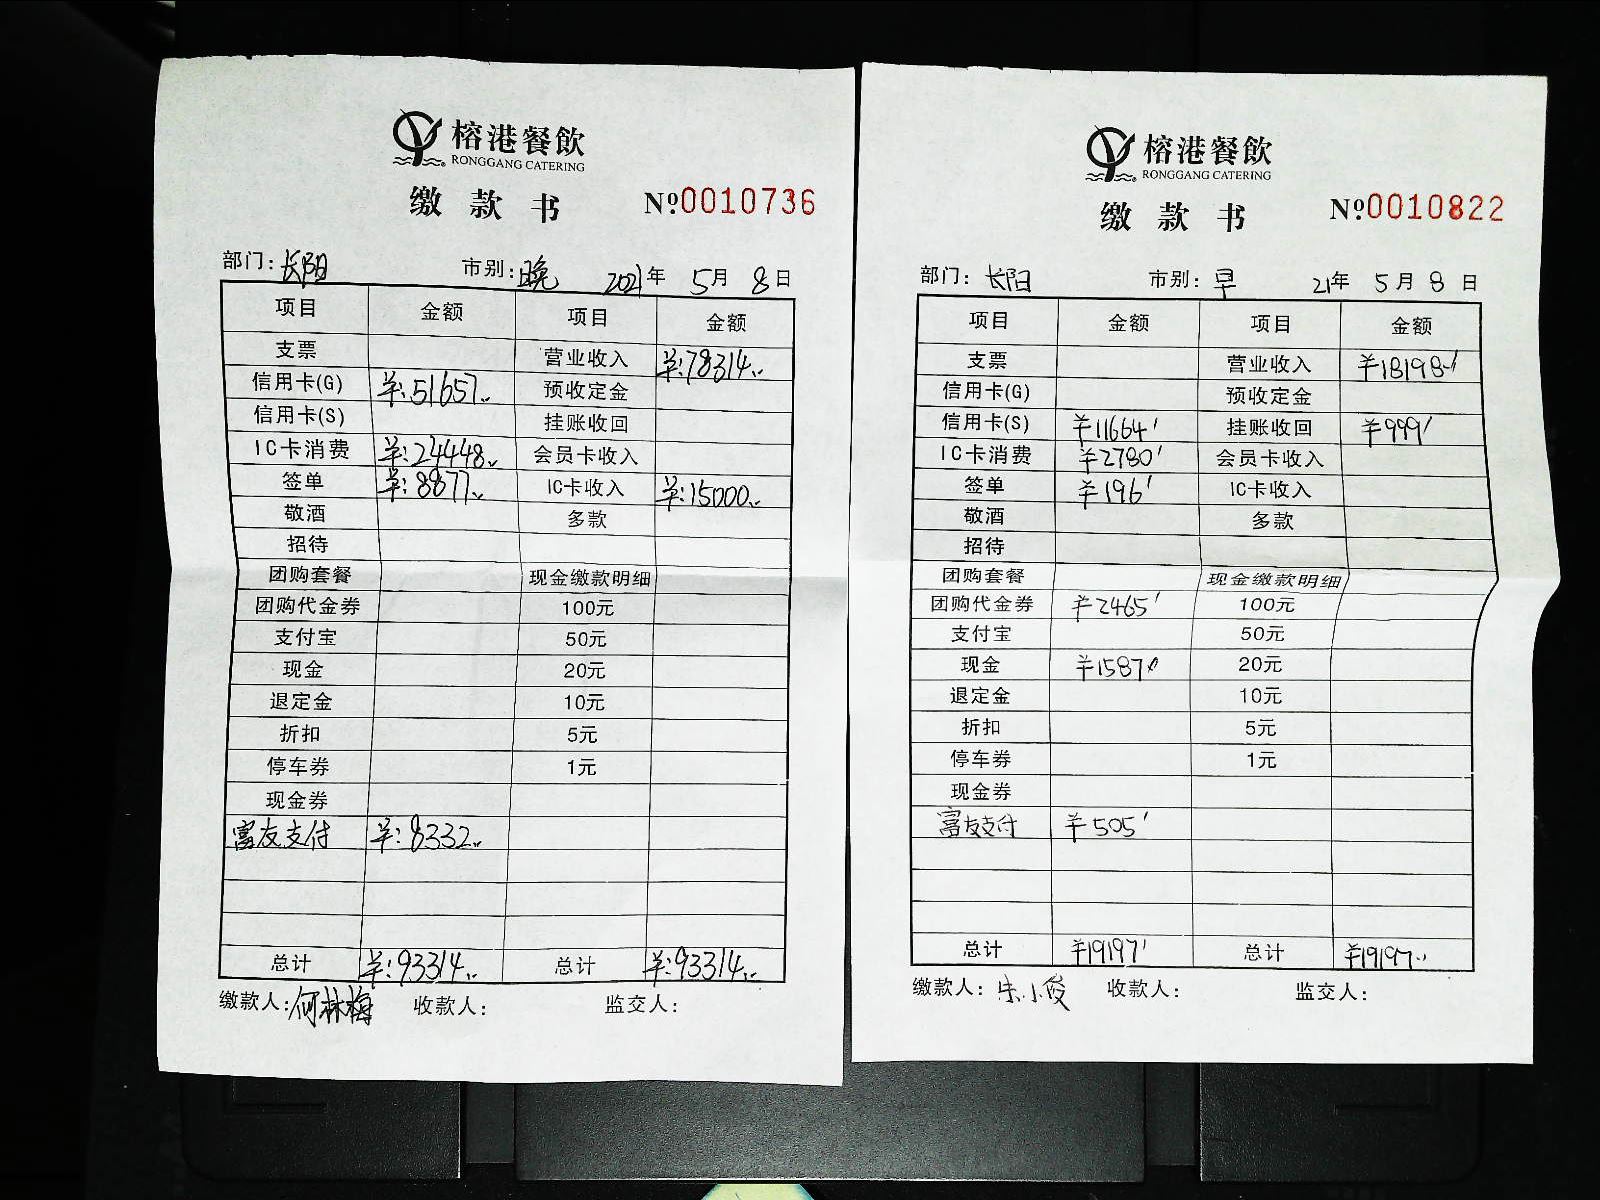 榕港餐飲
RONGGANG CATERING
缴款书 Nº:0010736
部门:长阳 市别:晚 2021年 5月 8日
项目 金额 项目 金额
支票 营业收入 ¥:78314
信用卡(G) ¥:51657 预收定金
信用卡(S) 挂账收回
IC卡消费 ¥:24448 会员卡收入
签单 ¥:8877 IC卡收入 ¥:15000
敬酒 多款
招待
团购套餐 现金缴款明细
团购代金券 100元
支付宝 50元
现金 20元
退定金 10元
折扣 5元
停车券 1元
现金券
富友支付 ¥:8332
总计 ¥:93314 总计 ¥:93314
缴款人:何林梅 收款人: 监交人:
榕港餐飲
RONGGANG CATERING
缴款书 Nº:0010822
部门:长阳 市别:早 21年 5月 8日
项目 金额 项目 金额
支票 营业收入 ¥18198
信用卡(G) 预收定金
信用卡(S) ¥11664 挂账收回 ¥999
IC卡消费 ¥2780 会员卡收入
签单 ¥196 IC卡收入
敬酒 多款
招待
团购套餐 现金缴款明细
团购代金券 ¥2465 100元
支付宝 50元
现金 ¥1587 20元
退定金 10元
折扣 5元
停车券 1元
现金券
富友支付 ¥505
总计 ¥19197 总计 ¥19197
缴款人:朱小俊 收款人: 监交人: